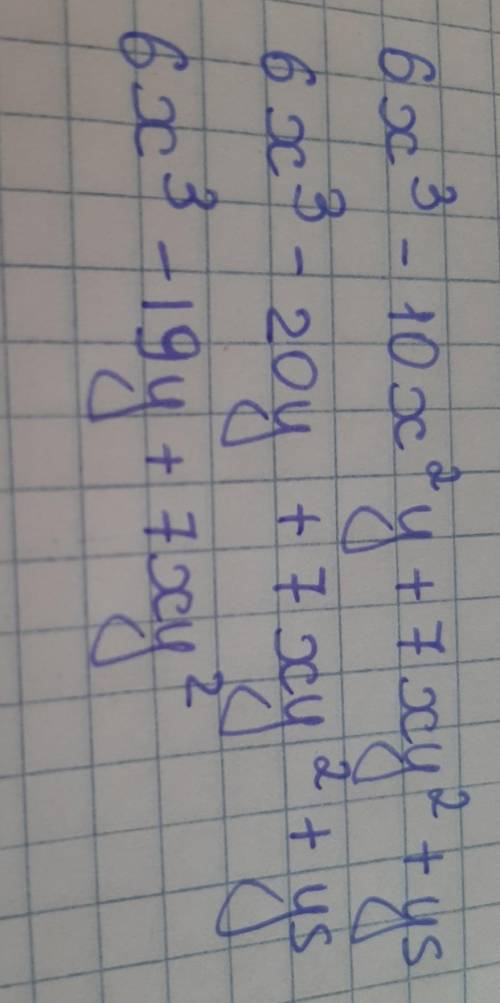 6x³ - 10x²y + 7xy² + ys
6x³ - 20y + 7xy² + ys
6x³ - 19y + 7xy²